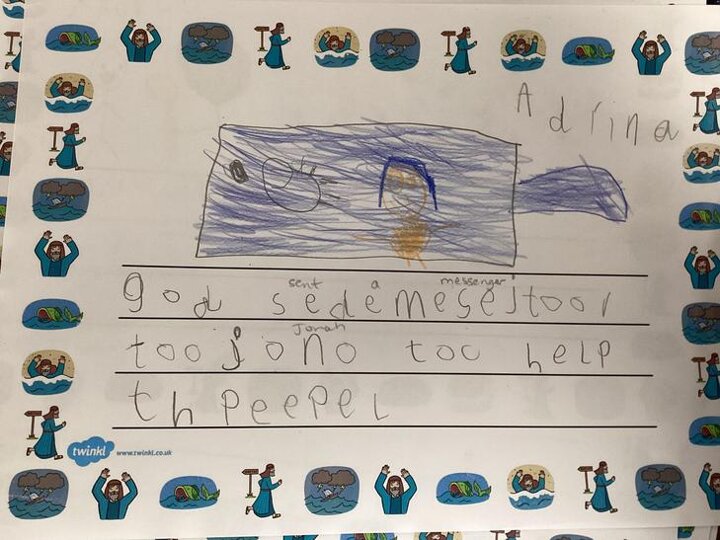 Adrina
sent a messenger
god sed e mesejtool
Jonah
too jono too help
th peepel
twinkl www.twinkl.co.uk